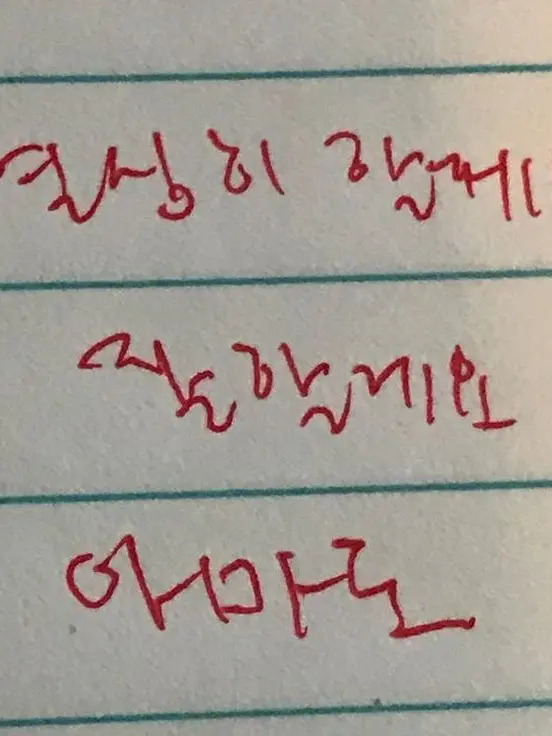 열심히 할게
잘할게요
아마도